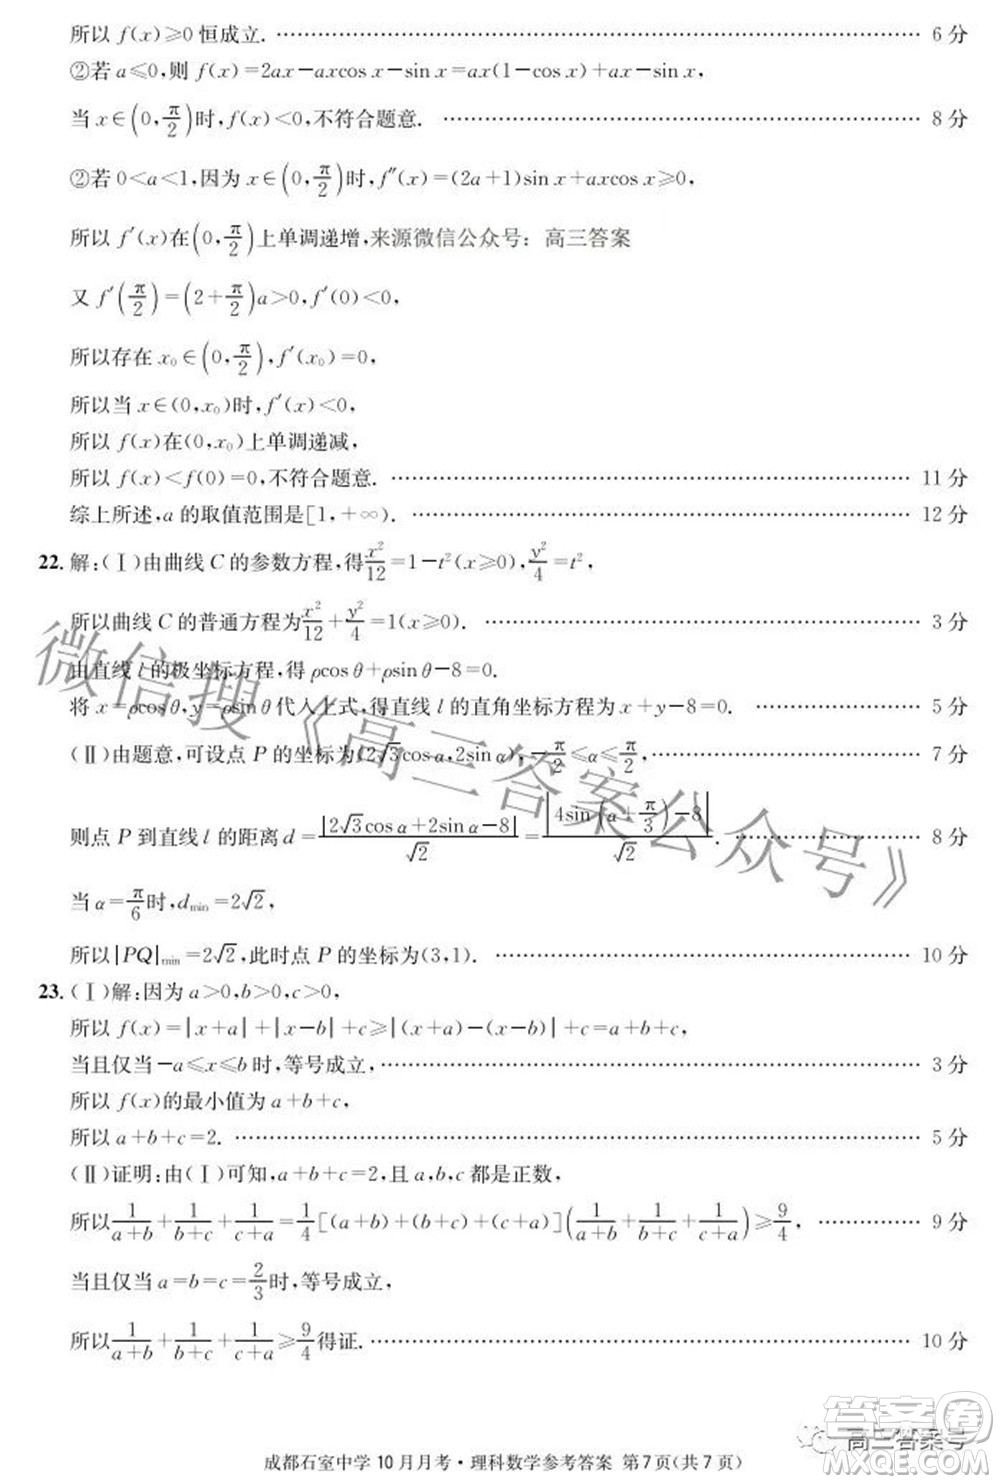 所以 f(x)≥0 恒成立. ………… 6 分
②若 a≤0,则 f(x)=2ax-axcos x-sin x=ax(1-cos x)+ax-sin x,
当 x∈(0,π/2)时,f(x)<0,不符合题意. ………… 8 分
②若 0<a<1,因为 x∈(0,π/2)时,f″(x)=(2a+1)sin x+axcos x≥0,
所以 f′(x)在(0,π/2)上单调递增, 来源微信公众号：高三答案
又 f′(π/2)=(2+π/2)a>0,f′(0)<0,
所以存在 x₀∈(0,π/2),f′(x₀)=0,
所以当 x∈(0,x₀)时,f′(x)<0,
所以 f(x)在(0,x₀)上单调递减,
所以 f(x)<f(0)=0,不符合题意. ………… 11 分
综上所述,a 的取值范围是[1,+∞). ………… 12 分
22. 解:(Ⅰ)由曲线 C 的参数方程,得x²/12=1-t²(x≥0),y²/4=t²,
所以曲线 C 的普通方程为x²/12+y²/4=1(x≥0). ………… 3 分
由直线 l 的极坐标方程,得 ρcos θ+ρsin θ-8=0.
将 x=ρcos θ,y=ρsin θ 代入上式,得直线 l 的直角坐标方程为 x+y-8=0. ………… 5 分
(Ⅱ)由题意,可设点 P 的坐标为(2√3cos α,2sin α),-π/2≤α≤π/2, ………… 7 分
则点 P 到直线 l 的距离 d=|2√3cos α+2sin α-8|/√2=|4sin(α+π/3)-8|/√2. ………… 8 分
当 α=π/6时,d_min=2√2,
所以|PQ|_min=2√2,此时点 P 的坐标为(3,1). ………… 10 分
23. (Ⅰ)解:因为 a>0,b>0,c>0,
所以 f(x)=|x+a|+|x-b|+c≥|(x+a)-(x-b)|+c=a+b+c,
当且仅当-a≤x≤b 时,等号成立, ………… 3 分
所以 f(x)的最小值为 a+b+c,
所以 a+b+c=2. ………… 5 分
(Ⅱ)证明:由(Ⅰ)可知,a+b+c=2,且 a,b,c 都是正数,
所以1/(a+b)+1/(b+c)+1/(c+a)=1/4[(a+b)+(b+c)+(c+a)](1/(a+b)+1/(b+c)+1/(c+a))≥9/4, ………… 9 分
当且仅当 a=b=c=2/3时,等号成立,
所以1/(a+b)+1/(b+c)+1/(c+a)≥9/4得证. ………… 10 分
微信搜《高三答案公众号》
答案圈
高三答案号
成都石室中学 10 月月考·理科数学参考答案 第 7 页(共 7 页)